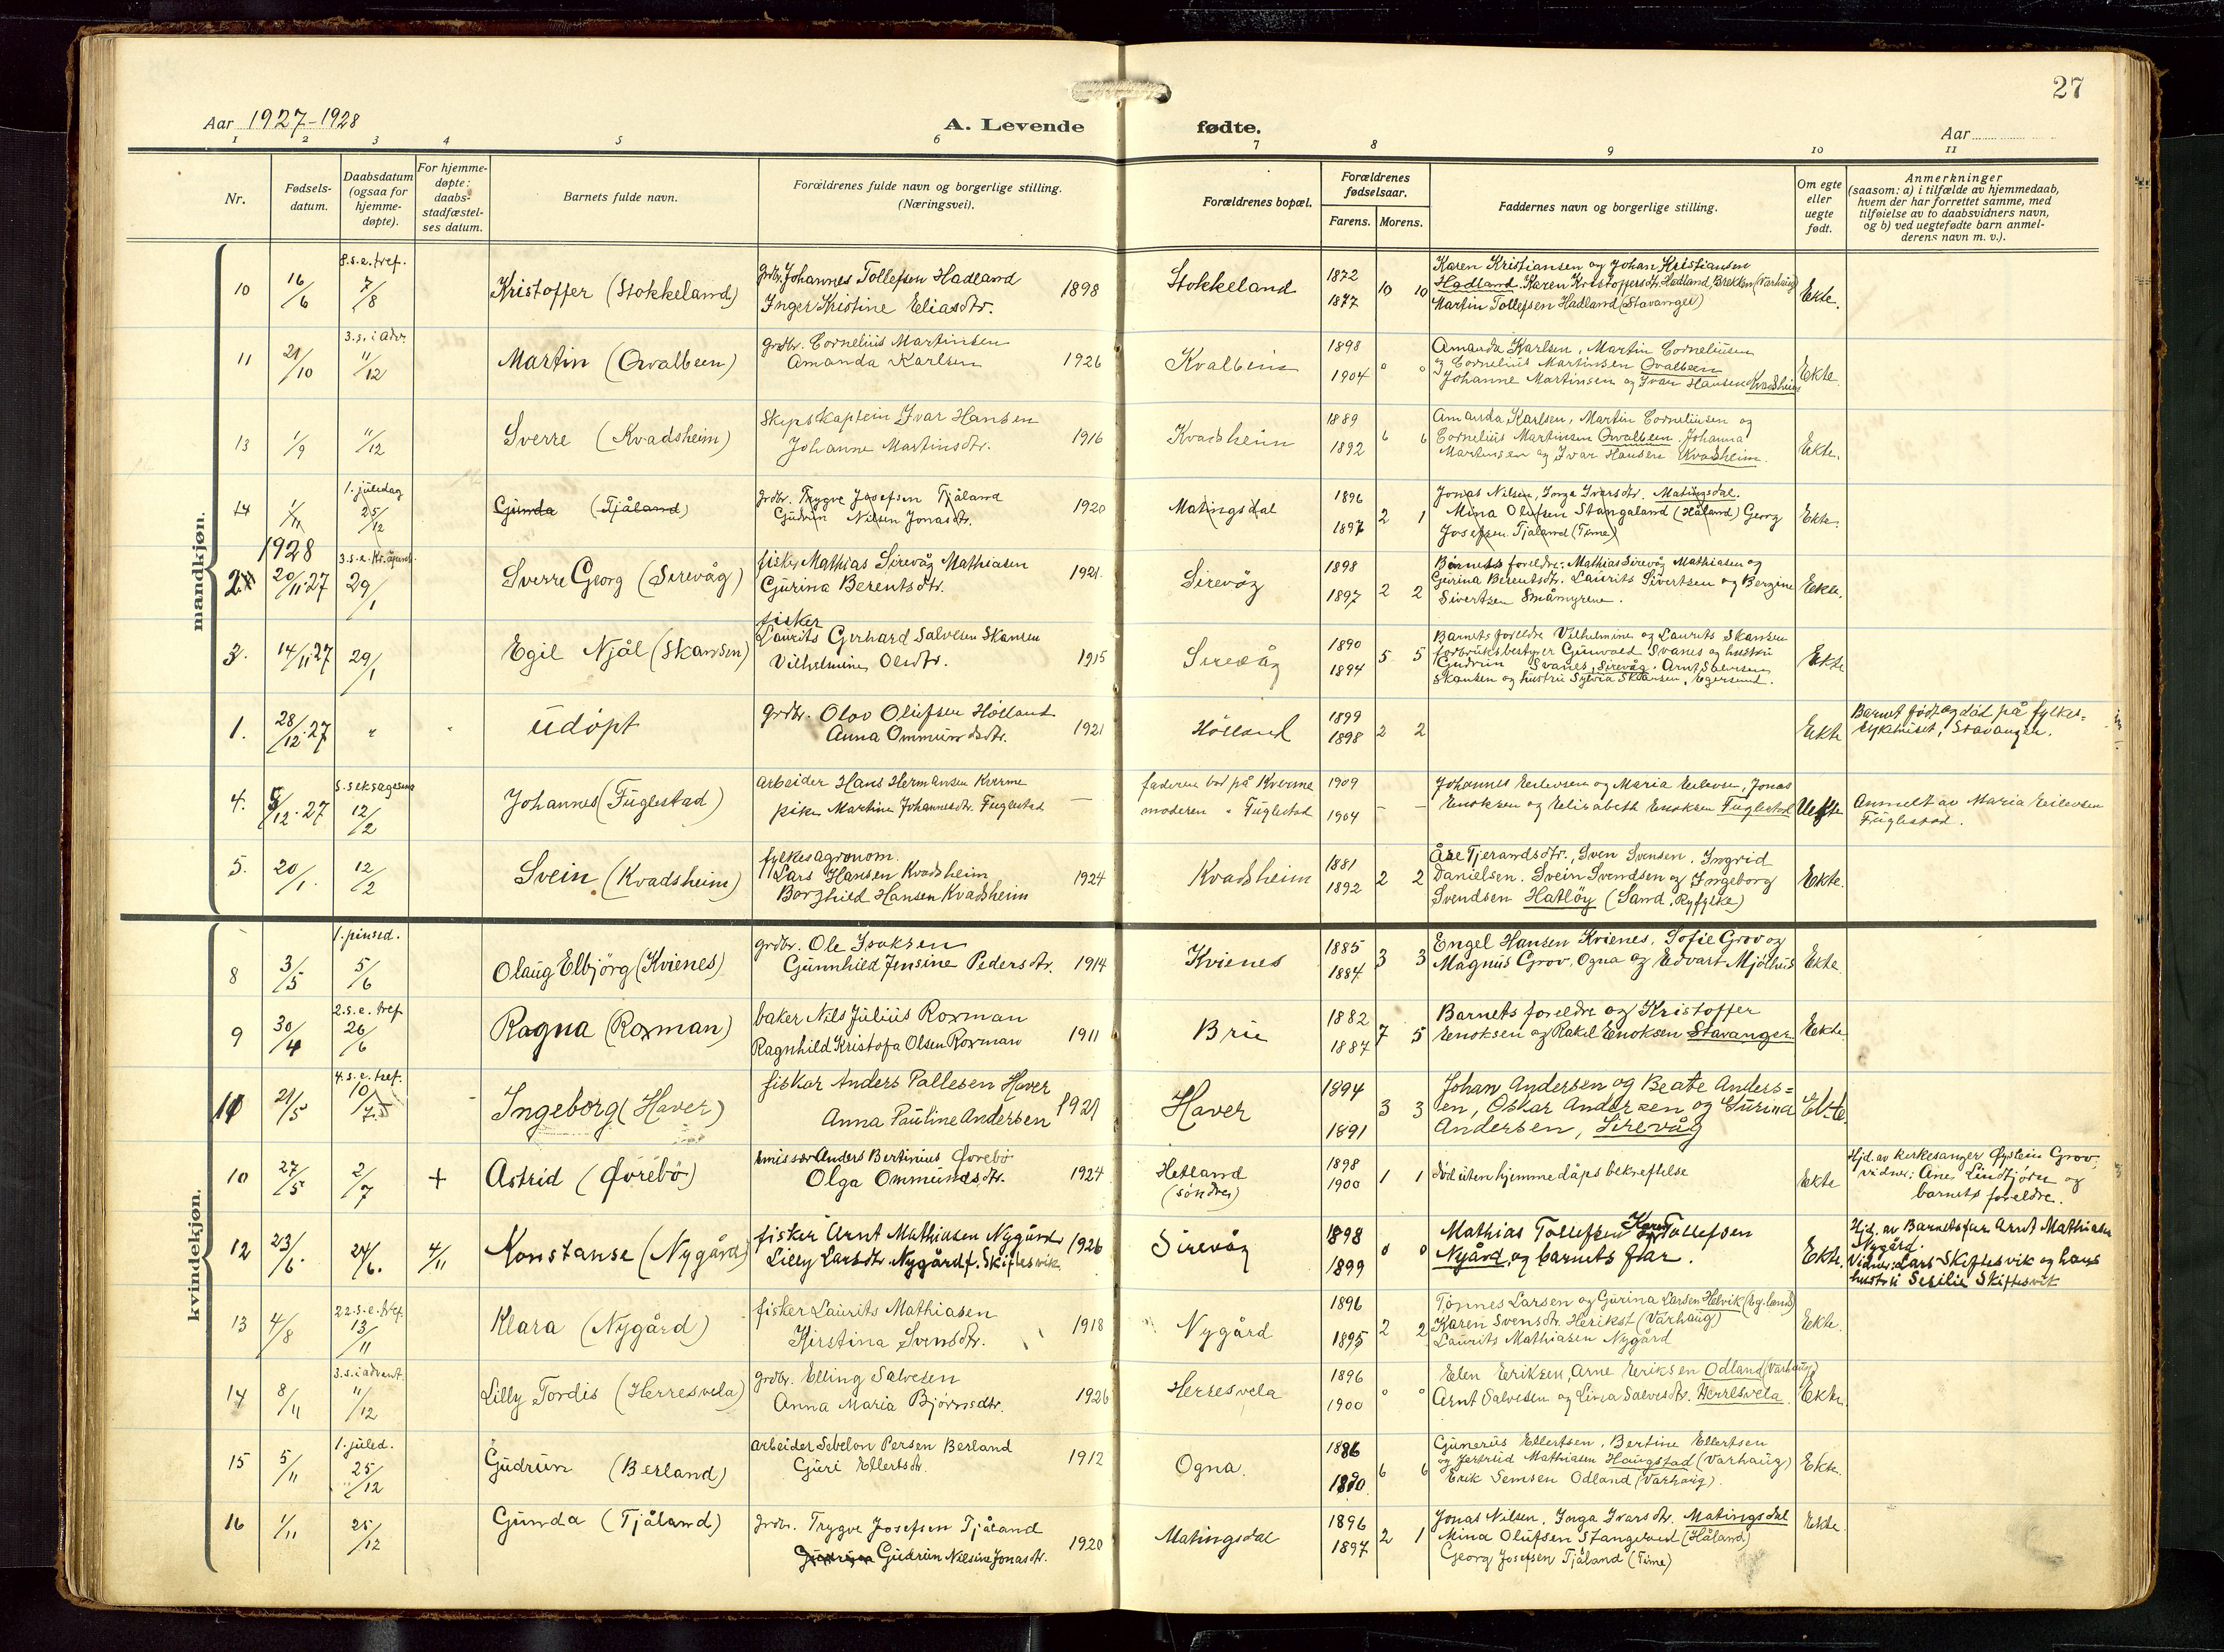 27
Aar 1927-1928
A. Levende fødte.
Aar
1 2 3 4 5 6 7 8 9 10 11
Nr.
Fødsels-
datum.
Daabsdatum
(ogsaa for
hjemme-
døpte).
For hjemme-
døpte:
daabs-
stadfæstel-
ses datum.
Barnets fulde navn.
Forældrenes fulde navn og borgerlige stilling.
(Næringsvei).
Forældrenes bopæl.
Forældrenes
fødselsaar.
Farens. Morens.
Faddernes navn og borgerlige stilling.
Om egte
eller
uegte
født.
Anmerkninger
(saasom: a) i tilfælde av hjemmedaab,
hvem der har forrettet samme, med
tilføielse av to daabsvidners navn,
og b) ved uegtefødte barn anmel-
derens navn m. v.).
mandkjøn.
8.s.e.tref.
10 16/6 7/8 Kristoffer (Stokkeland)
grdbr. Johannes Tollefsen Hadland
Inger Kristine Eliasdtr. 1898
Stokkeland 1872 1877 10 10
Karen Kristiansen og Johan Kristiansen
Hadland. Karen Kristoffersdtr. Hadland, Brekken (Varhaug)
Martin Tollefsen Hadland (Stavanger)
Ekte.
3.s. i adv.
11 21/10 11/12 Martin (Qvalbeen)
grdbr. Cornelius Martinsen
Amanda Karlsen 1926
Kvalbein 1898 1904 0 0
Amanda Karlsen, Martin Corneliusen
og Cornelius Martinsen Qvalbeen
Johanne Martinsen og Ivar Hansen Kvadsheim
Ekte.
13 1/9 11/12 Sverre (Kvadsheim)
Skipskaptein Ivar Hansen
Johanne Martinsdtr. 1916
Kvadsheim 1889 1892 6 6
Amanda Karlsen, Martin Corneliusen og
Cornelius Martinsen Qvalbeen. Johanna
Martinsen og Ivar Hansen Kvadsheim.
Ekte.
1. juledag
14 1/11 25/12 Gunda (Tjåland)
grdbr. Trygve Josefsen Tjåland
Gudrun Nilsen Jonasdtr. 1920
Matingsdal 1896 1897 2 1
Jonas Nilsen, Inga Ivarsdtr. Matingsdal.
Mina Olufsen Stangaland (Håland) Georg
Josefsen Tjåland (Time)
Ekte.
1928
2 20/11.27 29/1 Sverre Georg (Sirevåg)
fisker Mathias Sirevåg Mathiasen
Gurina Berentsdtr. 1921
Sirevåg 1898 1897 2 2
Barnets foreldre: Mathias Sirevåg Mathiasen og
Gurina Berentsdtr. Laurits Sivertsen og Bergine
Sivertsen Småmyrene.
Ekte.
3. 14/11.27 29/1 Egil Njål (Skansen)
fisker
Laurits Gerhard Salvesen Skansen
Vilhelmine Olsdtr. 1915
Sirevåg 1890 1894 5 5
Barnets foreldre Vilhelmine og Laurits Skansen
forbruksbestyrer Gunvald Svanes og hustru
Gudrun Svanes, Sirevåg. Arnt Salvesen
Skansen og hustru Sylvia Skansen, Egersund.
Ekte
1. 28/12.27 " " udöpt
grdbr. Olav Olufsen Hölland
Anna Ommundsdtr. 1921
Hölland 1899 1898 2 2
Ekte
Barnet födt og död på fylkes=
sykehuset, Stavanger.
S. seksagesima
4. 12.27 12/2 Johannes (Fuglestad)
arbeider Hans Hermansen Kverme
pike Martine Johannesdtr. Fuglestad —
faderen bor på Kverme
moderen " Fuglestad
1909 1904 — —
Johannes Eielevsen og Maria Eielevsen, Jonas
Enoksen og Elisabeth Enoksen Fuglestad
Uekte
Anmelt av Maria Eielevsen
Fuglestad.
5. 20/1. 12/2 Svein (Kvadsheim)
fylkesagronom.
Lars Hansen Kvadsheim
Borghild Hansen Kvadsheim 1924
Kvadsheim 1881 1892 2 2
Åse Tjerandsdtr., Sven Svensen, Ingrid
Danielsen. Svein Svendsen og Ingeborg
Svendsen Hatlöy (Sand, Ryfylke)
Ekte.
kvindekjøn.
1. pinsed.
8 3/5 5/6 Olaug Elbjörg (Kvienes)
grdbr. Ole Isaksen
Gunnhild Jensine Pedersdtr. 1914
Kvienes 1885 1884 3 3
Engel Hansen Kvienes, Sofie Grov og
Magnus Grov, Ogna og Edvart Mjölhus
Ekte.
2.s.e.tref.
9 30/4 26/6 Ragna (Roxman)
baker Nils Julius Roxman
Ragnhild Kristofa Olsen Roxman 1911
Brue 1882 1887 7 5
Barnets foreldre og Kristoffer
Enoksen og Rakel Enoksen Stavanger
Ekte
4.s.e.tref.
11 21/5 10/7 Ingeborg (Haver)
fisker Anders Pallesen Haver
Anna Pauline Andersen 1921
Haver 1894 1891 3 3
Johan Andersen og Beate Anders=
en, Oskar Andersen og Gurina
Andersen, Sirevåg
Ekte.
10 27/5 2/7 + Astrid (Örebö)
emissær Anders Bertinius Örebö
Olga Ommundsdtr. 1924
Hetland
(söndre)
1898 1900 1 1
Död uten hjemmedåps bekreftelse
Ekte
Hjd. av kirkesanger Øystein Grov,
vidner: Ane Lindtjörn og
barnets foreldre.
12 23/6 24/6. 4/11 Konstanse (Nygård)
fisker Arnt Mathiasen Nygård
Lilly Larsdtr. Nygård f. Skiftesvik 1926
Sirevåg 1898 1899 0 0
Mathias Tollefsen Karen Tollefsen
Nygård og barnets far.
Ekte.
Hjd. av Barnets far Arnt Mathiasen
Nygård.
Vidner: Lars Skiftesvik og hans
hustru Sesilie Skiftesvik
22.s.e.tref.
13 4/8 13/11 Klara (Nygård)
fisker Laurits Mathiasen
Kirstina Svensdtr. 1918
Nygård 1896 1895 2 2
Tönnes Larsen og Gurina Larsen Helvik (Egersund)
Karen Svensdtr. Herikst (Varhaug)
Laurits Mathiasen Nygård
Ekte.
3.s. i advent.
14 8/11 11/12 Lilly Tordis (Herresvela)
grdbr. Elling Salvesen
Anna Maria Bjørnsdtr. 1926
Herresvela 1896 1900 0 0
Elen Eriksen, Arne Eriksen Odland (Varhaug)
Arnt Salvesen og Lina Salvesdtr. Herresvela
Ekte.
1. juled.
15 5/11 25/12 Gudrun (Berland)
arbeider Sebelon Persen Berland
Guri Ellertsdtr. 1912
Ogna. 1886 1890 6 6
Gunerius Ellertsen, Bertine Ellertsen
og Jertrud Mathiasen Haugstad (Varhaug)
Erik Semsen Odland (Varhaug).
Ekte.
16 1/11 25/12 Gunda (Tjåland)
grdbr. Trygve Josefsen Tjåland
Gudrun Nilsine Jonasdtr. 1920
Matingsdal 1896 1897 2 1
Jonas Nilsen, Inga Ivarsdtr. Matingsdal
Mina Olufsen Stangeland (Håland)
Georg Josefsen Tjåland (Time)
Ekte